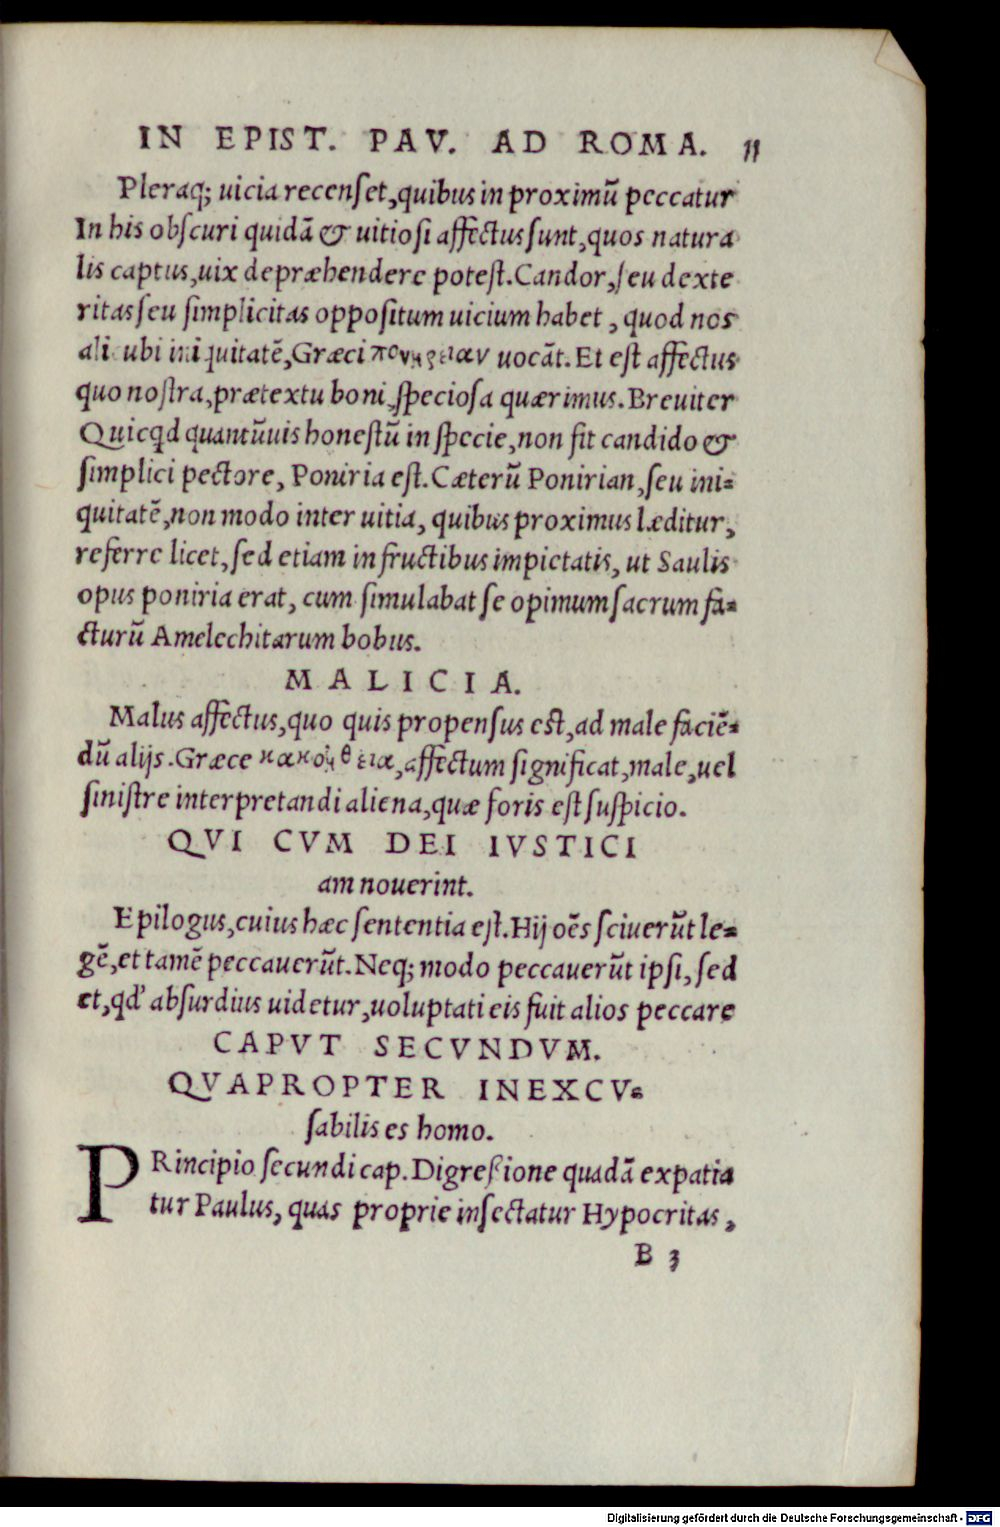 IN EPIST. PAV. AD ROMA. 11
Pleraq; uicia recenſet,quibus in proximũ peccatur
In his obſcuri quidã & uitioſi affectus ſunt,quos natura
lis captus,uix depræhendere poteſt.Candor,ſeu dexte
ritas ſeu ſimplicitas oppoſitum uicium habet, quod nos
alicubi iniquitatẽ,Græci πονηρειαν uocãt.Et eſt affectus
quo noſtra,prætextu boni,ſpecioſa quærimus.Breuiter
Quicqd quantũuis honeſtũ in ſpecie,non fit candido &
ſimplici pectore, Poniria eſt.Cæterũ Ponirian,ſeu ini=
quitatẽ,non modo inter uitia, quibus proximus læditur,
referre licet,ſed etiam in fructibus impietatis, ut Saulis
opus poniria erat, cum ſimulabat ſe opimum ſacrum fa=
cturũ Amelechitarum bobus.
MALICIA.
Malus affectus,quo quis propenſus est,ad male faciẽ=
dũ alijs.Græce κακοήθεια,affectum ſignificat,male,uel
ſiniſtre interpretandi aliena,quæ foris eſt ſuſpicio.
QVI CVM DEI IVSTICI
am nouerint.
Epilogus,cuius hæc ſententia eſt.Hij oẽs ſciuerũt le=
gẽ,et tamẽ peccauerũt.Neq; modo peccauerũt ipſi,ſed
et,qd' abſurdius uidetur,uoluptati eis fuit alios peccare
CAPVT SECVNDVM.
QVAPROPTER INEXCV=
ſabilis es homo.
PRincipio ſecundi cap.Digreſsione quadã expatia
tur Paulus, quas proprie inſectatur Hypocritas,
B 3
Digitalisierung gefördert durch die Deutsche Forschungsgemeinschaft - DFG